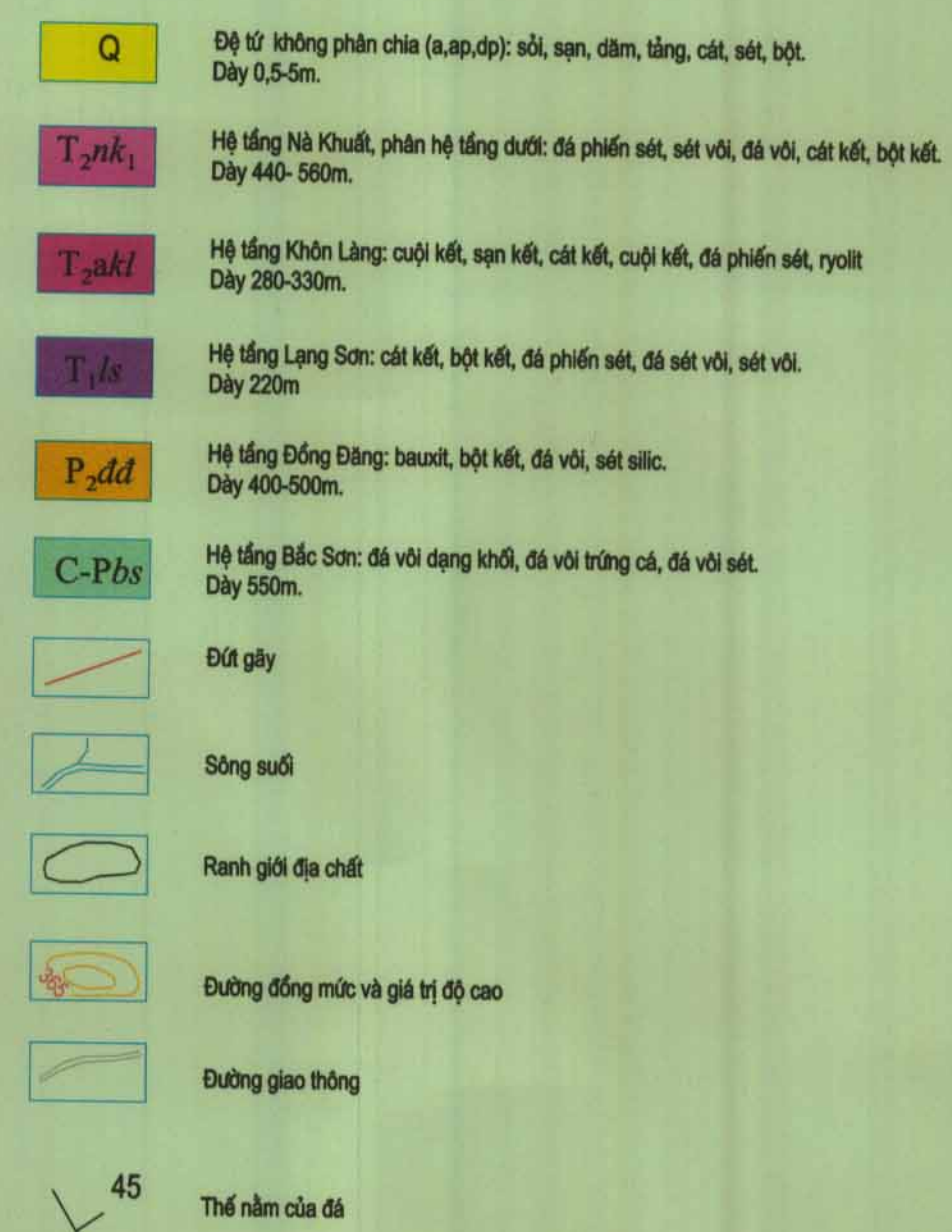 Q
Đệ tứ không phân chia (a,ap,dp): sỏi, sạn, dăm, tảng, cát, sét, bột.
Dày 0,5-5m.
T₂nk₁
Hệ tầng Nà Khuất, phân hệ tầng dưới: đá phiến sét, sét vôi, đá vôi, cát kết, bột kết.
Dày 440- 560m.
T₂akl
Hệ tầng Khôn Làng: cuội kết, sạn kết, cát kết, cuội kết, đá phiến sét, ryolit
Dày 280-330m.
T₁ls
Hệ tầng Lạng Sơn: cát kết, bột kết, đá phiến sét, đá sét vôi, sét vôi.
Dày 220m
P₂đđ
Hệ tầng Đồng Đăng: bauxit, bột kết, đá vôi, sét silic.
Dày 400-500m.
C-Pbs
Hệ tầng Bắc Sơn: đá vôi dạng khối, đá vôi trứng cá, đá vôi sét.
Dày 550m.
Đứt gãy
Sông suối
Ranh giới địa chất
Đường đồng mức và giá trị độ cao
Đường giao thông
45
Thế nằm của đá